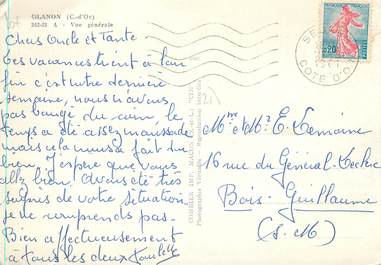 GLANON (C.-d'Or)
242-22 A - Vue générale
Chers Oncle et Tante
Les vacances tirent à leur
fin c'est notre dernière
semaine, nous n'avons
pas bougé du coin, le
temps a été assez maussade
mais cela nous a fait du
bien. J'espère que vous
allez bien. Avons été très
de votre situation
je ne comprends pas-
Bien affectueusement
à tous les deux
COMBIER IMP. MACON (S.-et-L.) "CIM"
Photographie Véritable - Reproduction interdite
0,20
COTE D'OR
Mme et Mr E. Lemoine
16 rue du Général-Leclerc
Bois-Guillaume
(S.-M)